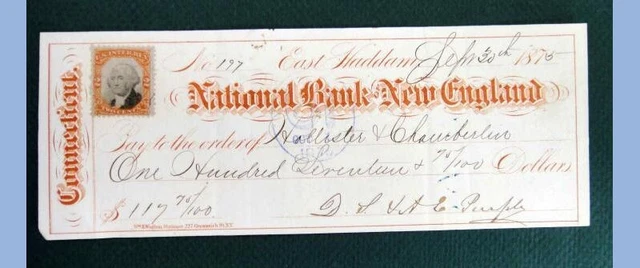 U.S. INTER. REV.
No 197 East Haddam, Sept 30th 1875
National Bank of New England
Connecticut.
Pay to the order of Hollister & Chamberlin
One Hundred Seventeen & 75/100 Dollars
$ 117 75/100 D. S. & A. E. Purple